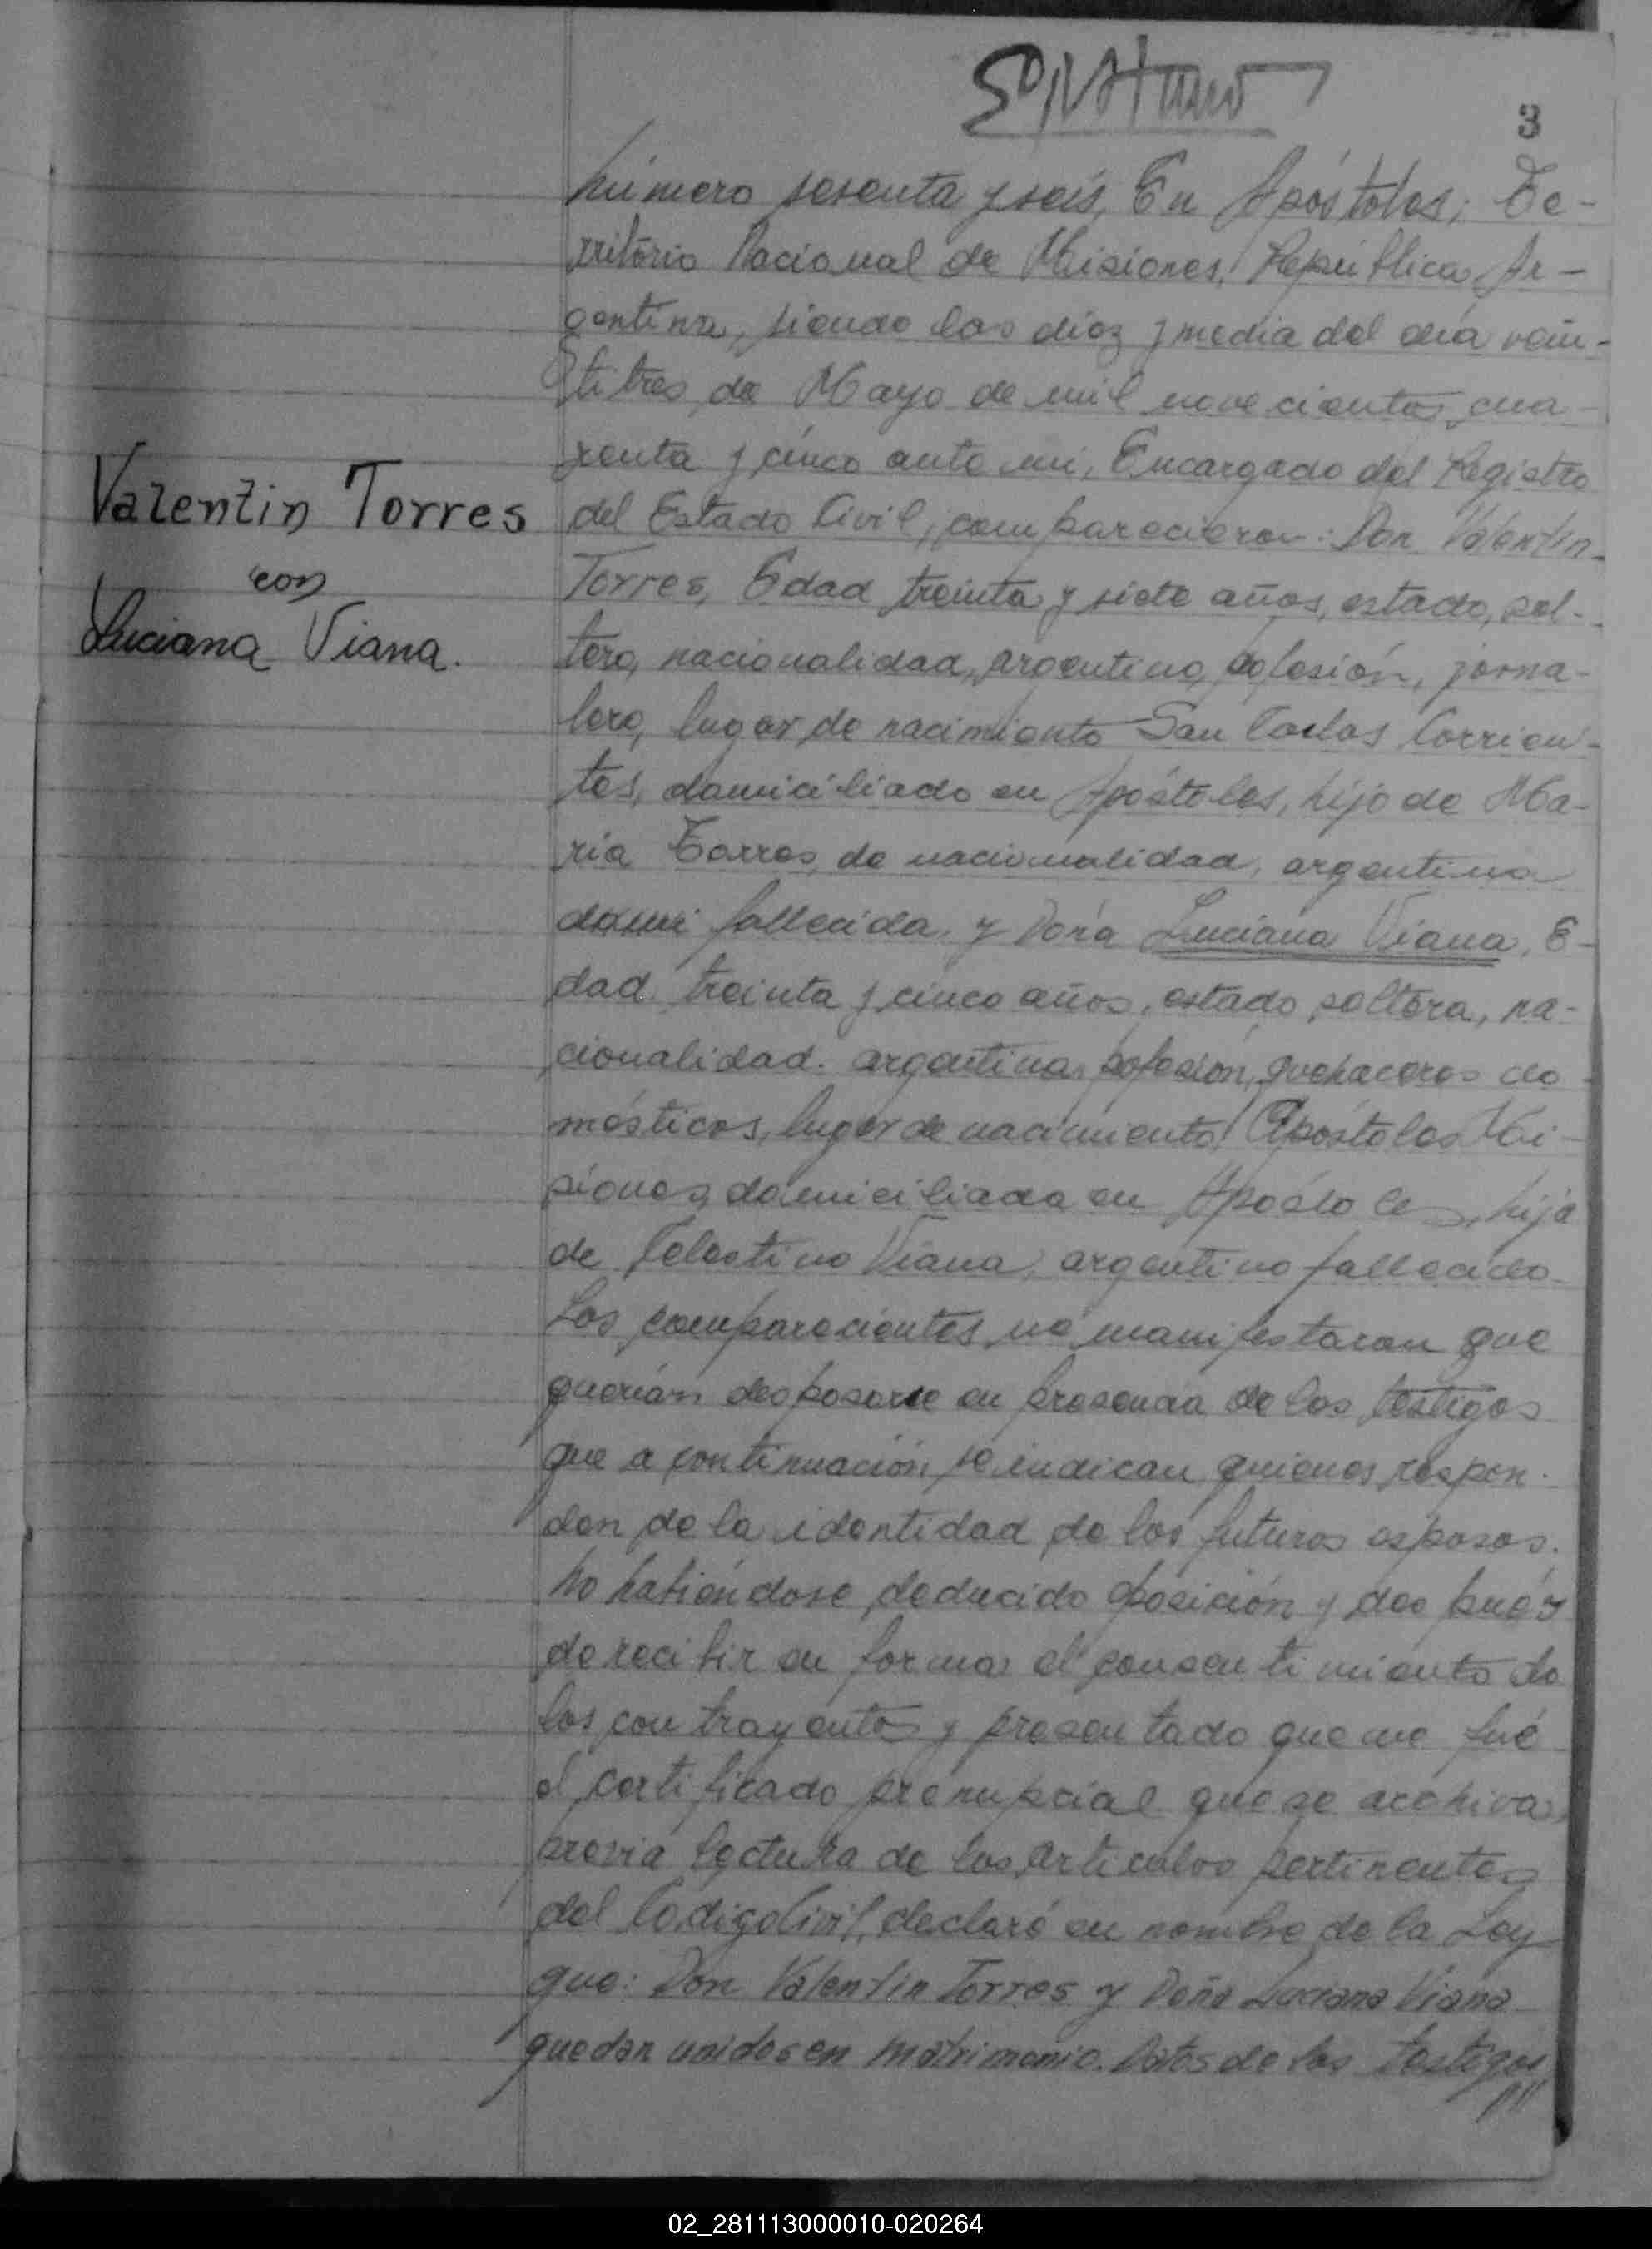 3
Número sesenta y seis, En Apóstoles, Te-
rritório Nacional de Misiones, República Ar-
gentina, siendo las diez y media del día vein-
titres de Mayo de mil novecientos cua-
renta y cinco ante mi, Encargado del Registro
del Estado Civil, comparecieron: Don Valentin
Torres, Edad treinta y siete años, estado, sol-
tero, nacionalidad, argentino, pofesión, jorna-
lero, lugar de nacimiento San Carlos Corrien-
tes, domiciliado en Apóstoles, hijo de Ma-
ria Torres, de nacionalidad, argentina
fallecida y Doña Luciana Viana, E-
dad treinta y cinco años, estado soltera, na-
cionalidad. argentina, pofesión, quehaceres do
mésticos, lugar de nacimiento, Apóstoles Mi-
siones, domiciliada en Apóstoles, hija
de Celestino Viana, argentino fallecido
Los comparecientes me manifestaron que
querían desposarse en presencia de los testigos
que a continuación se indican quienes respon-
den de la identidad de los futuros esposos.
No habiéndose deducido oposición y después
de recibir en forma el consentimiento de
los contrayentes y presentado que me fué
el certificado prenupcial que se archiva,
previa lectura de los articulos pertinentes
del Codigo Civil, declaré en nombre de la Ley
que: Don Valentin Torres y Doña Luciana Viana
quedan unidos en matrimonio. Datos de los testigos
Valentin Torres
con
Luciana Viana.
02_281113000010-020264